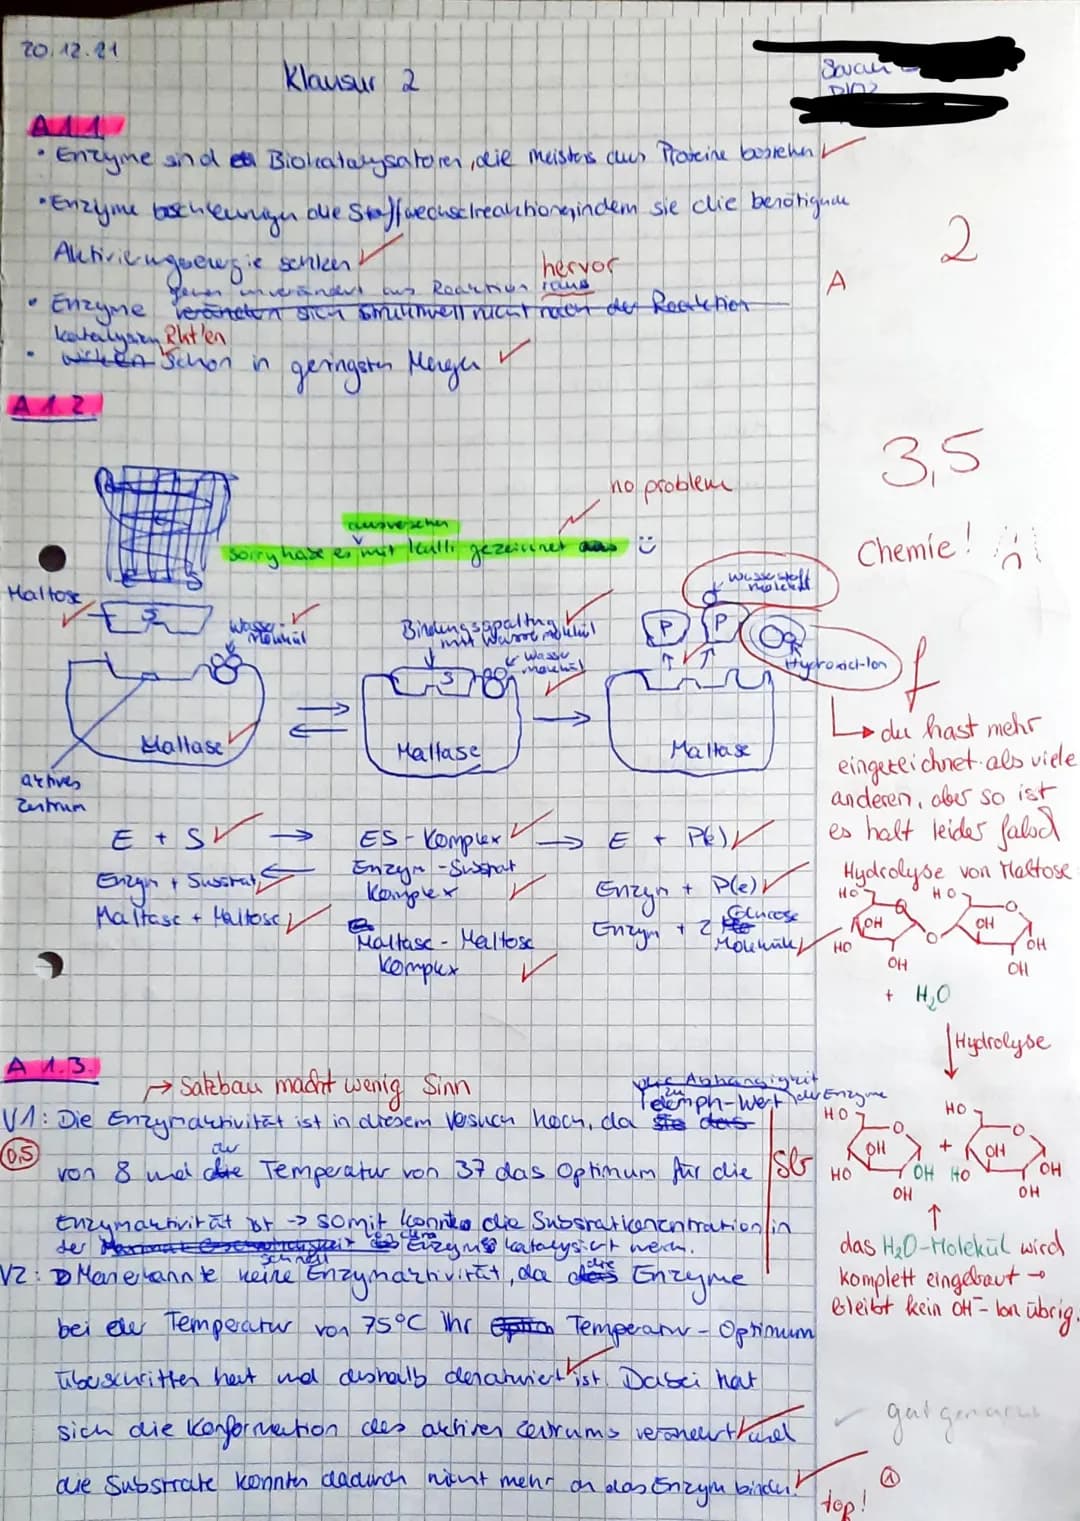 20.12.21
Klausur 2
Sarah
A 1.1
• Enzyme sind Biokatalysatoren, die meistens aus Proteine bestehen
• Enzyme beschleunigen die Stoffwechselreaktionen, indem sie die benötigende
Aktivierungsenergie senken
2
A
hervor
gehen unverändert aus Reaktion raus
• Enzyme verändern sich strukturell nicht nach der Reaktion
katalysieren Rkt'en
• wirken schon in geringsten Mengen
A 1.2
3,5
no problem
ausversehen
sorry habe es mit Kulli gezeichnet
Chemie!
Maltose
S
Wasser-
molekül
Bindungsspaltung
mit Wassermolekül
S
Wasser
molekül
P
P
Wasserstoff
molekül
Hydroxid-Ion
f
Maltase
Maltase
Maltase
aktives
Zentrum
↳ du hast mehr
eingezeichnet als viele
anderen, aber so ist
es halt leider falsch
E + S → ES-Komplex → E + P(e)
Enzym + Substrat
Enzym-Substrat
Komplex
Enzym + P(e)
Maltase + Maltose
Maltase-Maltose
Komplex
Enzym + 2 Glucose
Moleküle
Hydrolyse von Maltose
HO
HO
O
O
OH
OH
HO
O
OH
OH
OH
+ H₂O
Hydrolyse
A 1.3.
→ Satzbau macht wenig Sinn
die Abhängigkeit
zu
der Enzyme
V1: Die Enzymaktivität ist in diesem Versuch hoch, da
ph-Wert
0,5
von 8 und die Temperatur von 37 das Optimum für die
Sb
Enzymaktivität ist -> somit konnte die Substratkoncentration in
der
Enzyms katalysiert werden.
schnell
V2: Man erkannte keine Enzymaktivität, da die Enzyme
bei der Temperatur von 75°C ihr Temperatur-Optimum
überschritten hat und deshalb denaturiert ist. Dabei hat
sich die Konformation des aktiven Zentrums verändert und
die Substrate konnten dadurch nicht mehr an das Enzym binden.
HO
HO
O
O
OH
+
OH
HO
OH
HO
OH
OH
OH
das H₂O-Molekül wird
komplett eingebaut →
bleibt kein OH⁻-Ion übrig.
1
top!